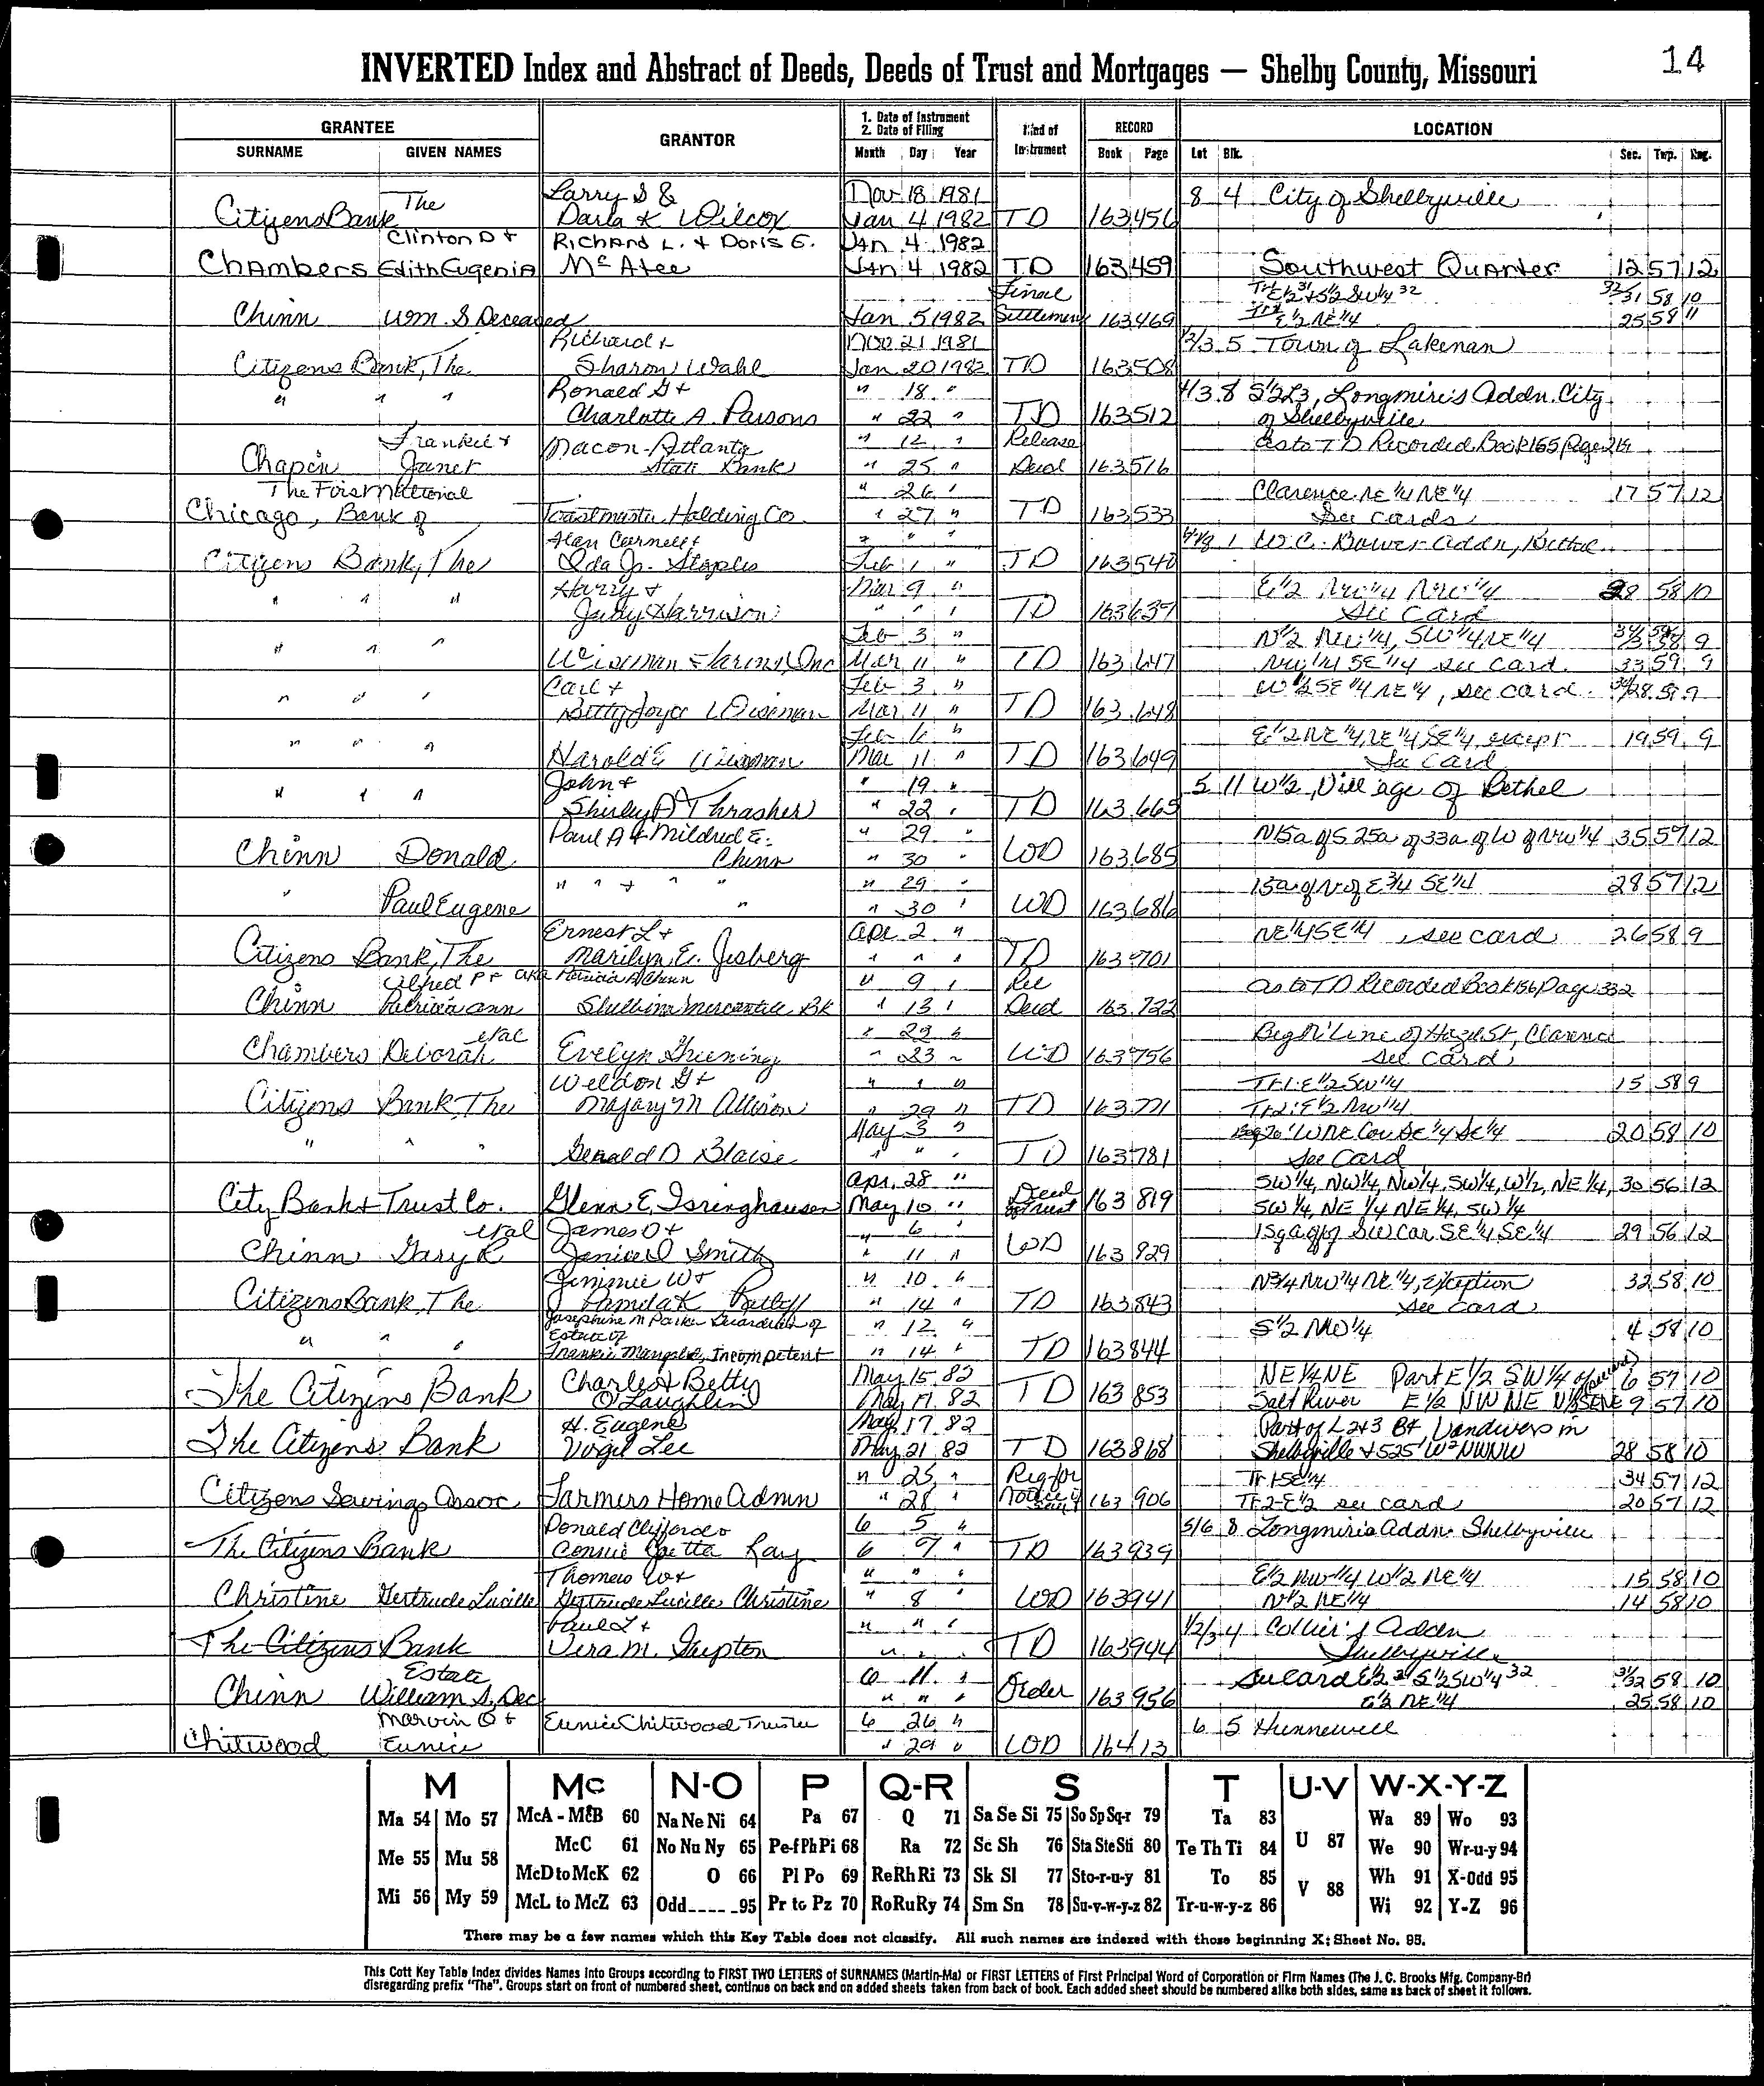 14
INVERTED Index and Abstract of Deeds, Deeds of Trust and Mortgages — Shelby County, Missouri
GRANTEE GRANTOR 1. Date of Instrument 2. Date of Filing Kind of Instrument RECORD LOCATION
SURNAME GIVEN NAMES Month Day Year Book Page Lot Blk. Sec. Twp. Rng.
The Larry S & Nov 18 1981 8 4 City of Shelbyville
Citizens Bank Darla K Wilcox Jan 4 1982 TD 163 456
Clinton D + Richard L. + Doris E. Jan 4 1982
Chambers Edith Eugenia McAtee Jan 4 1982 TD 163 459 Southwest Quarter 12 57 12
Final Tr E 1/2 31 + S 1/2 SW 1/4 32 32/31 58 10
Chinn Wm. S Deceased Jan 5 1982 Settlement 163 469 E 1/2 NE 1/4 25 58 11
Richard + Nov 21 1981 2/3 5 Town of Lakenan
Citizens Bank, The Sharon Wahl Jan 20 1982 TD 163 508
Ronald G + " 18 " 4/3 8 S 1/2 L3, Longmire's Addn. City
" " " Charlotte A. Parsons " 22 " TD 163 512 of Shelbyville
Frankie + Macon-Atlanta " 12 " Release as to TD Recorded Book 155 Page 214
Chapin Janet State Bank " 25 " Deed 163 516
The First National " 26 " Clarence NE 1/4 NE 1/4 17 57 12
Chicago, Bank of Toastmaster Holding Co " 27 " TD 163 533 See cards
Alan Cornell + " " " 1 W.C. Bower Addn, Bethel
Citizens Bank, The Ida Jo. Staples Feb 1 " TD 163 540
Harry + Mar 9 " E 1/2 NW 1/4 NW 1/4 28 58 10
" " " Judy Harrison " " " TD 163 637 See Card
Feb 3 " N 1/2 NW 1/4, SW 1/4 NE 1/4
" " " Wiseman Farms, Inc Mar 11 " TD 163 647 NW 1/4 SE 1/4 see card 33 59 9
Carl + Feb 3 " W 1/2 SE 1/4 NE 1/4, see card
" " " Betty Joyce Wiseman Mar 11 " TD 163 648
Feb 6 " E 1/2 NE 1/4, NE 1/4 SE 1/4 except 19 59 9
" " " Harold E Wiseman Mar 11 " TD 163 649 See Card
John + " 19 " 5 11 W 1/2, Village of Bethel
" " " Shirley A Thrasher " 22 " TD 163 665
Paul A + Mildred E. " 29 " N 15a of S 25a of 33a of W of NW 1/4 35 57 12
Chinn Donald Chinn " 30 " WD 163 685
" " + " " " 29 " 15a of N of E 3/4 SE 1/4 28 57 12
" Paul Eugene " " 30 " WD 163 686
Ernest L + Apr 2 " NE 1/4 SE 1/4 see card 26 58 9
Citizens Bank, The Marilyn E. Jesberg " " " TD 163 701
Alfred P + aka Patricia A Chinn " 9 " Rel as to TD Recorded Book 156 Page 332
Chinn Patricia Ann Shelbina Mercantile Bk " 13 " Deed 163 722
etal " 22 " Beg N Line of Hazel St, Clarence
Chambers Deborah Evelyn Greening " 23 " WD 163 756 See card
Weldon G + " 1 " Tr 1: E 1/2 SW 1/4 15 58 9
Citizens Bank, The Majory M Allison " 29 " TD 163 771 Tr 2: E 1/2 NW 1/4
May 3 " Beg 20' W NE Cor SE 1/4 SE 1/4 20 58 10
" " " Gerald D Blaise " " " TD 163 781 See Card
Apr. 28 " SW 1/4, NW 1/4, NW 1/4, SW 1/4, W 1/2, NE 1/4, 30 56 12
City Bank + Trust Co. Glenn E. Isringhausen May 10 " Deed of Trust 163 819 SW 1/4, NE 1/4 NE 1/4, SW 1/4
etal James O + " 6 " 15 SW Cor SE 1/4 SE 1/4 29 56 12
Chinn Gary R Janice D Smith " 11 " WD 163 829
Jimmie W + " 10 " N 3/4 NW 1/4 NE 1/4, Exception 32 58 10
Citizens Bank, The Pamela K Ratliff " 14 " TD 163 843 see card
Josephine M Parker Guardian of Estate of " 12 " S 1/2 NW 1/4 4 58 10
" " " Frankie Mangold, Incompetent " 14 " TD 163 844
Charles + Betty May 15 82 NE 1/4 NE Part E 1/2 SW 1/4 6 57 10
The Citizens Bank O'Laughlin May 17. 82 TD 163 853 Salt River E 1/2 NW NE N 1/2 SENE 9 57 10
H. Eugene May 17 82 Part of L 2+3 B4 Vandivers in
The Citizens Bank Vogel Lee May 21 82 TD 163 868 Shelbyville + 525' W 2 NWNW 28 58 10
" 25 " Req for Tr 1 SE 1/4 34 57 12
Citizens Savings Assoc Farmers Home Admn " 28 " Notice 163 906 Tr 2-E 1/2 see card 20 57 12
Donald Clifford + 6 5 " 5/6 8 Longmire's Addn. Shelbyville
The Citizens Bank Connie Coetta Ray 6 7 " TD 163 939
Thomas W + " " " E 1/2 NW 1/4 W 1/2 NE 1/4 15 58 10
Christine Gertrude Lucille Gertrude Lucille Christine " 8 " WD 163 941 N 1/2 NE 1/4 14 58 10
Paul L + " " " 1/2/3 4 Collier's Addn
The Citizens Bank Vera M. Gupton " " TD 163 944 Shelbyville
Estate 6 11 " See card E 1/2 31 S 1/2 SW 1/4 32 31/32 58 10
Chinn William S, Dec " " " Order 163 956 E 1/2 NE 1/4 25 58 10
Marvin O + Eunice Chitwood Trustee 6 26 " 6 5 Hunnewell
Chitwood Eunice " 29 " WD 164 13
M Mc N-O P Q-R S T U-V W-X-Y-Z
Ma 54 Mo 57 McA - McB 60 Na Ne Ni 64 Pa 67 Q 71 Sa Se Si 75 So Sp Sq-r 79 Ta 83 U 87 Wa 89 Wo 93
Me 55 Mu 58 McC 61 No Nu Ny 65 Pe-f Ph Pi 68 Ra 72 Sc Sh 76 Sta Ste Sti 80 Te Th Ti 84 We 90 Wr-u-y 94
McD to McK 62 O 66 Pl Po 69 Re Rh Ri 73 Sk Sl 77 Sto-r-u-y 81 To 85 V 88 Wh 91 X-Odd 95
Mi 56 My 59 McL to McZ 63 Odd 95 Pr to Pz 70 Ro Ru Ry 74 Sm Sn 78 Su-v-w-y-z 82 Tr-u-w-y-z 86 Wi 92 Y-Z 96
There may be a few names which this Key Table does not classify. All such names are indexed with those beginning X; Sheet No. 95.
This Cott Key Table Index divides Names into Groups according to FIRST TWO LETTERS of SURNAMES (Martin-Ma) or FIRST LETTERS of First Principal Word of Corporation or Firm Names (The J. C. Brooks Mfg. Company-Br)
disregarding prefix "The". Groups start on front of numbered sheet, continue on back and on added sheets taken from back of book. Each added sheet should be numbered alike both sides, same as back of sheet it follows.